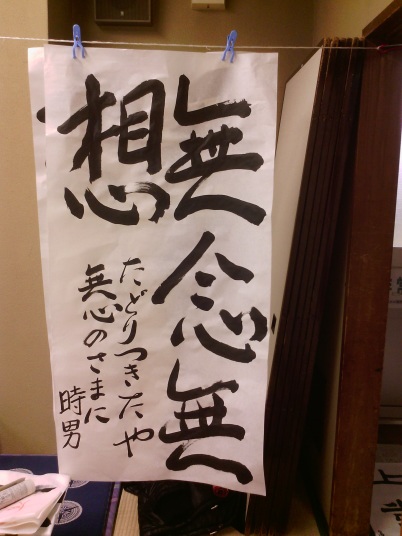 無念無
想
たどりつきたや
無心のさまに
時男